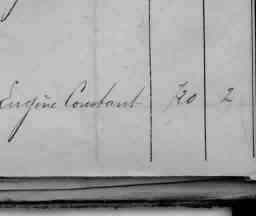 Eugène Constant 720 2